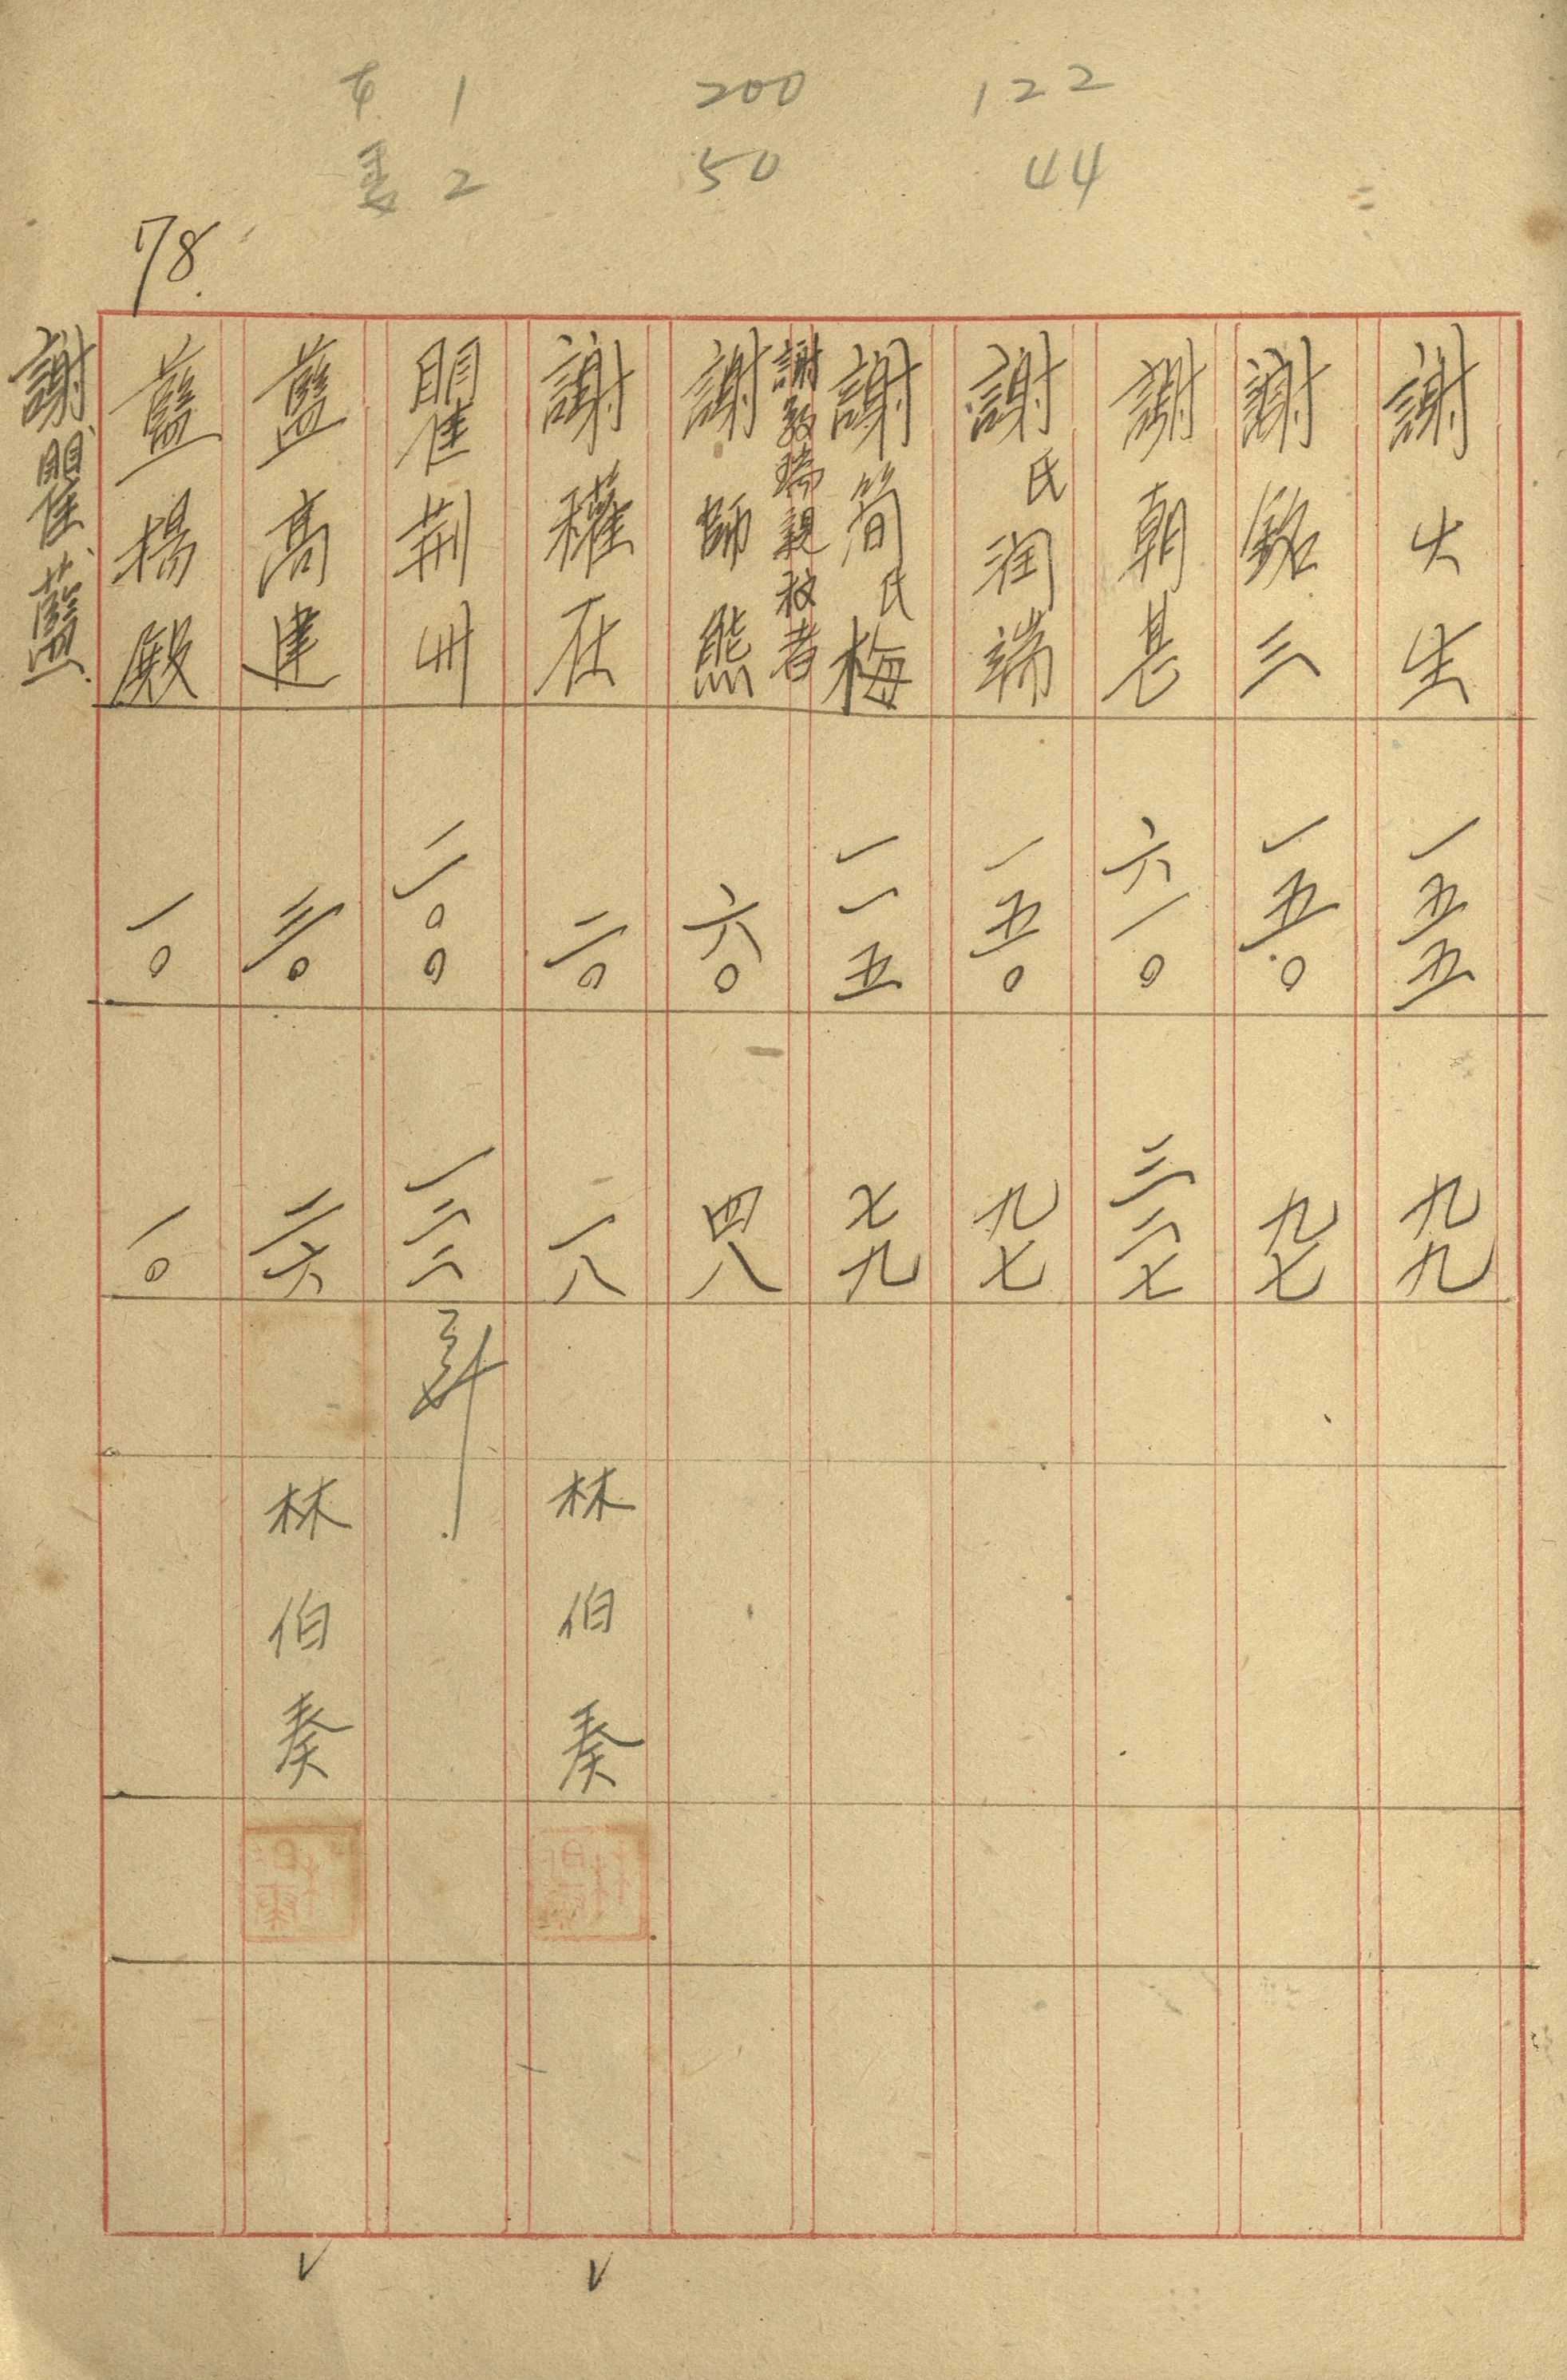 1 200 122
2 50 44
78.
謝火生 一五五 九九
謝銘三 一五〇 九七
謝朝昆 六一〇 三二七
謝氏潤端 一五〇 九七
謝簡氏梅 一一五 七九
謝敦瑞親权者
謝師熊 六〇 四八
謝權在 二〇 一八 林伯奏
瞿荆州 二〇〇 一二二
藍高建 三〇 二六 林伯奏
藍揚殿 一〇 一〇
謝、瞿、藍.